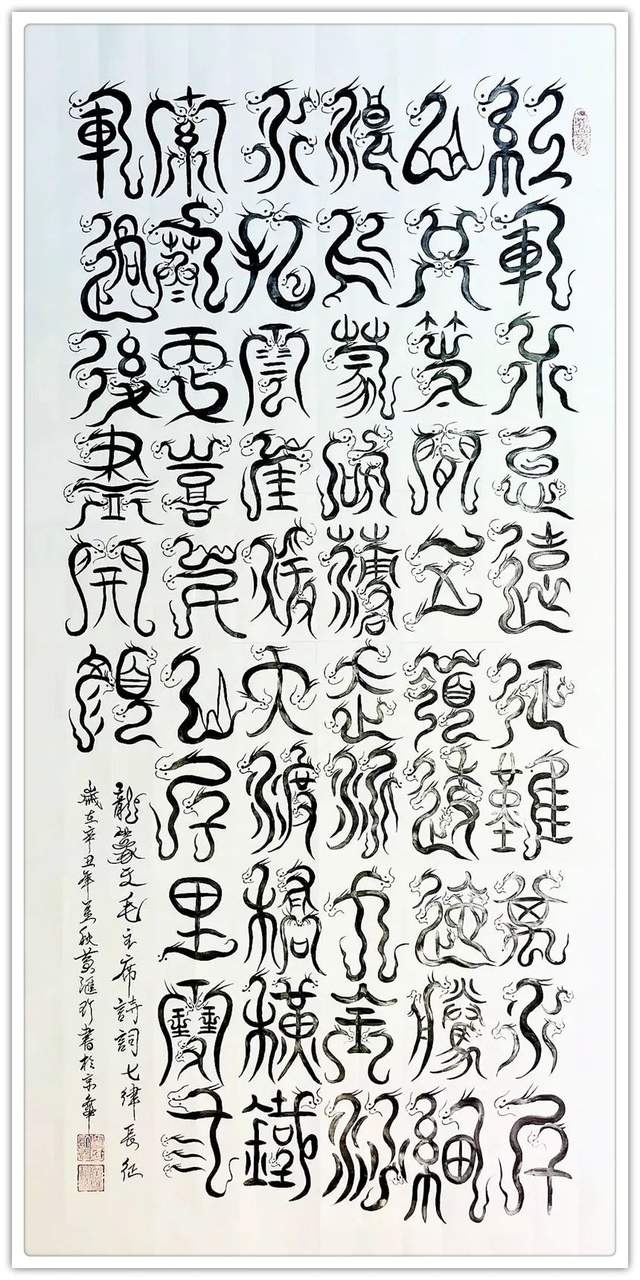 紅軍不怕遠征難萬水千
山只等閒五嶺逶迤騰細
浪烏蒙磅礴走泥丸金沙
水拍雲崖暖大渡橋橫鐵
索寒更喜岷山千里雪三
軍過後盡開顏
龍篆文毛主席詩詞七律長征
歲在辛丑年孟秋黃滙珍書於京華